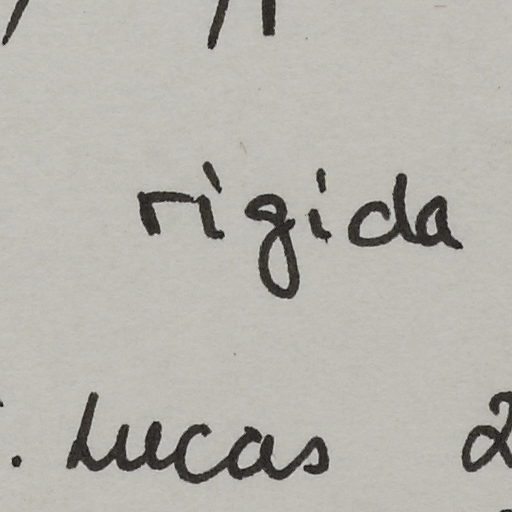 rigida
. Lucas 2